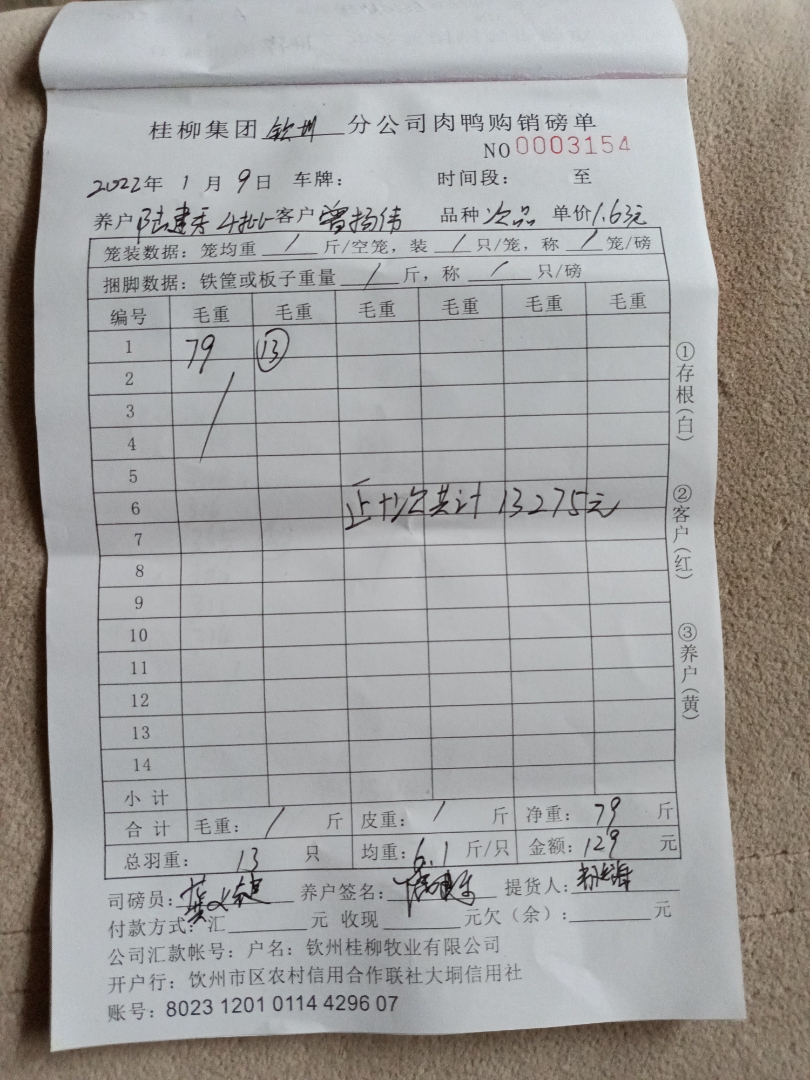 桂柳集团 钦州 分公司肉鸭购销磅单
NO 0003154
2022年 1 月 9 日 车牌： 时间段： 至
养户 陆建秀 4批 客户 曾扬伟 品种 次品 单价 1.63元
笼装数据：笼均重 / 斤/空笼，装 / 只/笼，称 / 笼/磅
捆脚数据：铁筐或板子重量 / 斤，称 / 只/磅
编号 毛重 毛重 毛重 毛重 毛重 毛重
1 79 ⑬
2
3
4
5
6 正+次共计 13275元
7
8
9
10
11
12
13
14
小 计
合 计 毛重： / 斤 皮重： / 斤 净重： 79 斤
总羽重： 13 只 均重：6.1 斤/只 金额：129 元
司磅员： 养户签名： 提货人：
付款方式：汇 元 收现 元欠（余）： 元
公司汇款帐号：户名：钦州桂柳牧业有限公司
开户行：饮州市区农村信用合作联社大垌信用社
账号：8023 1201 0114 4296 07
①存根（白）
②客户（红）
③养户（黄）